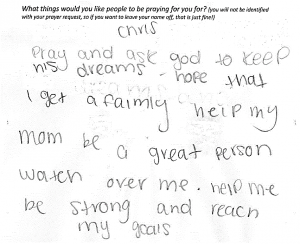 What things would you like people to be praying for you for? (you will not be identified
with your prayer request, so if you want to leave your name off, that is just fine!)
Chris
Pray and ask god to keep
his dreams - hope that
I get a faimly help my
mom be a great person
watch over me. help me
be strong and reach
my goals